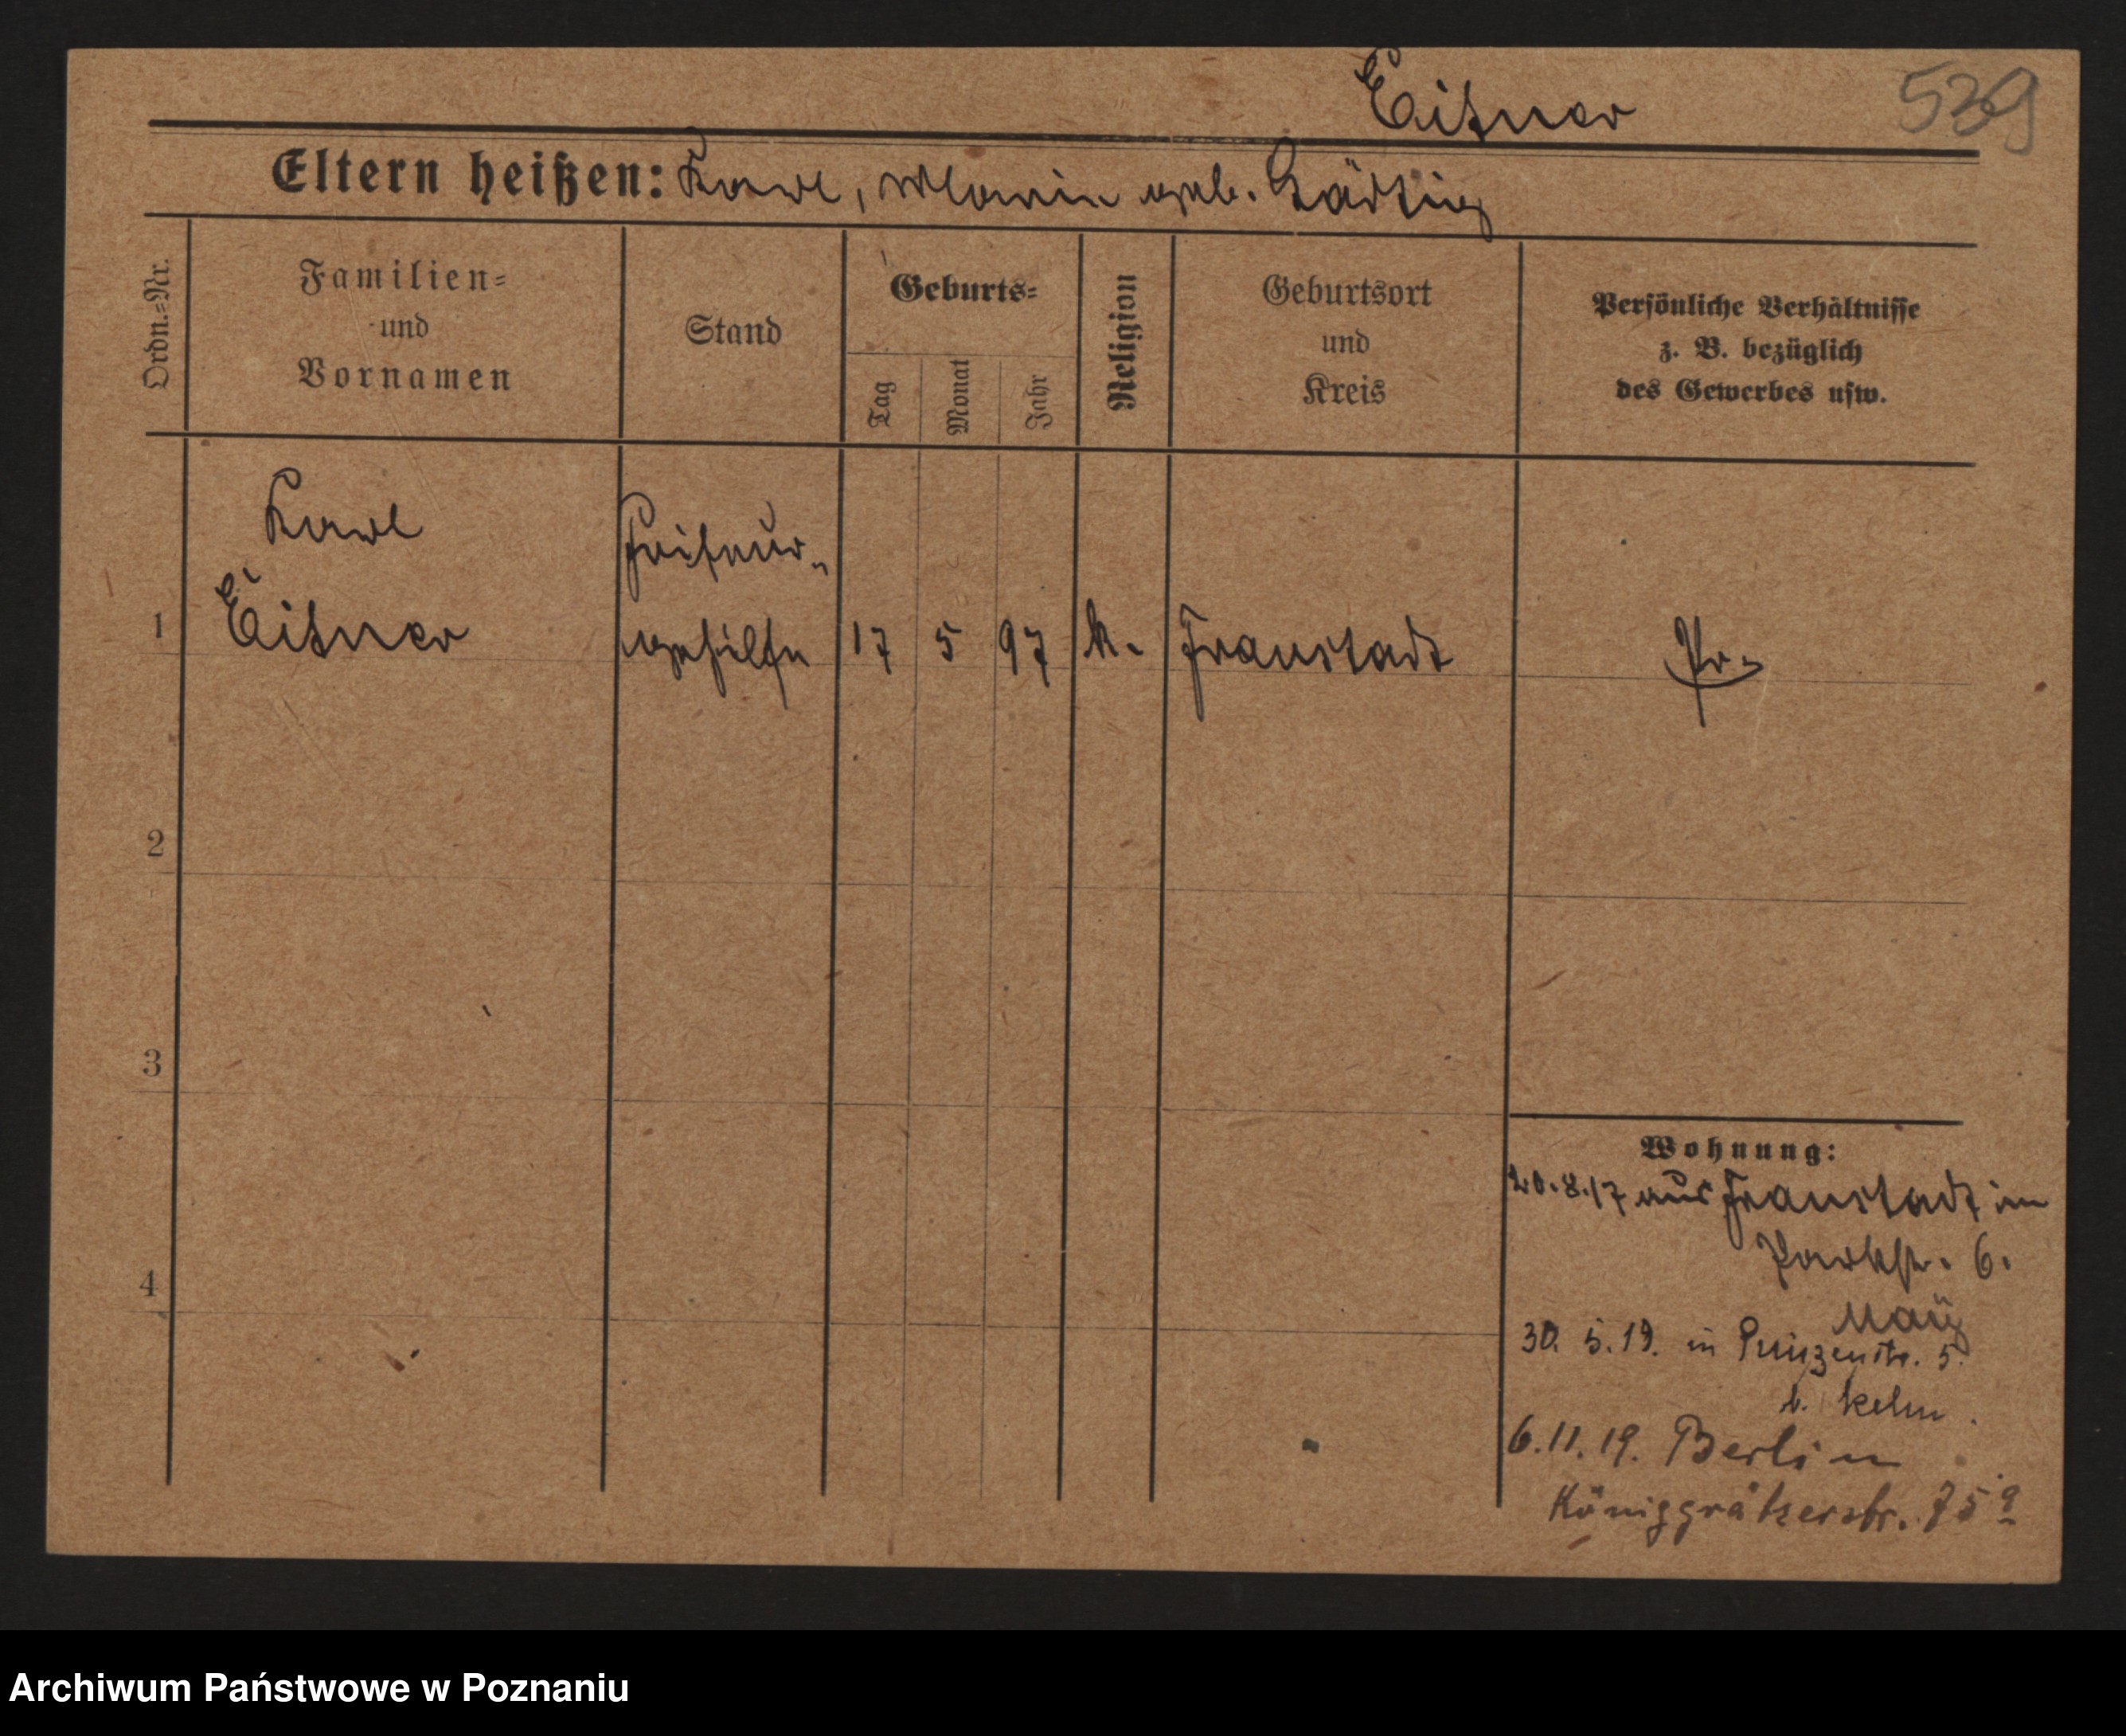 Eitner
539
Eltern heißen: Karl, Marie geb. Gärtig
Ordn.=Nr.
Familien=
und
Vornamen
Stand
Geburts=
Tag
Monat
Jahr
Religion
Geburtsort
und
Kreis
Persönliche Verhältnisse
z. B. bezüglich
des Gewerbes usw.
Karl
Eitner
Friseur„
gehilfe
1
17 5 97 k. Fraustadt Pr.
2
3
4
Wohnung:
20.8.17 aus Fraustadt in
Parkstr. 6.
May
30. 5. 19. in Prinzenstr. 5.
b. Kelm.
6.11.19. Berlin
Königgrätzerstr. 75a
Archiwum Państwowe w Poznaniu